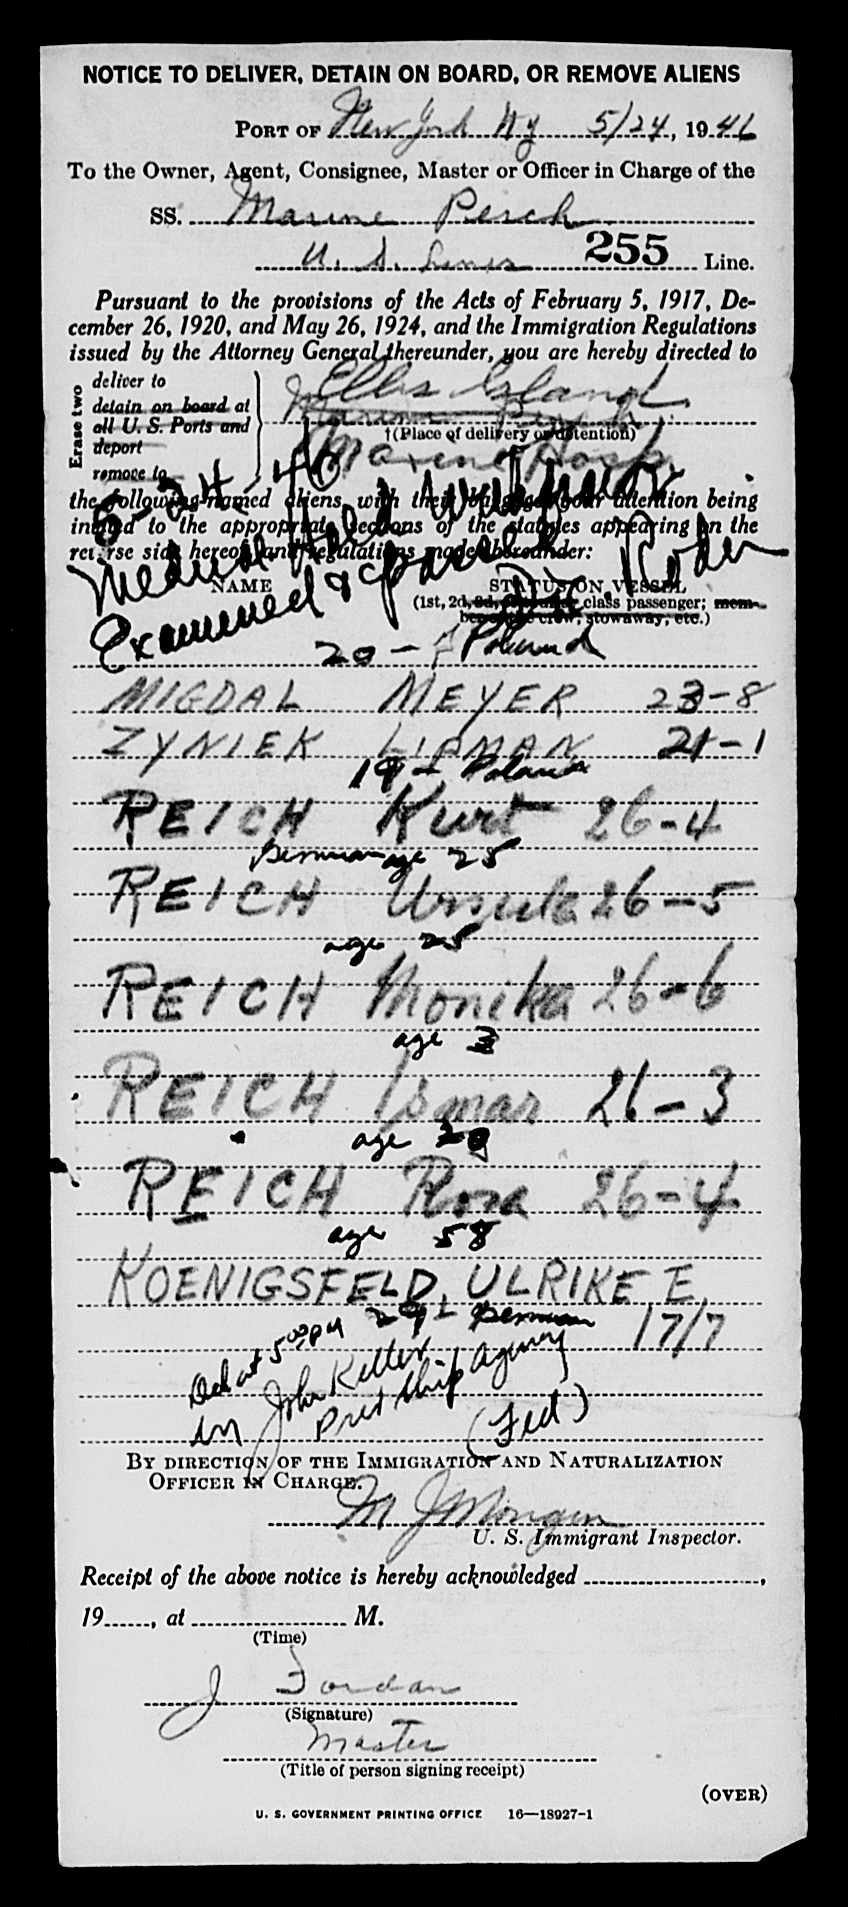 NOTICE TO DELIVER, DETAIN ON BOARD, OR REMOVE ALIENS
PORT OF New York Ny 5/24, 1946
To the Owner, Agent, Consignee, Master or Officer in Charge of the
SS. Marine Perch
U. S. Lines 255 Line.
Pursuant to the provisions of the Acts of February 5, 1917, De-
cember 26, 1920, and May 26, 1924, and the Immigration Regulations
issued by the Attorney General thereunder, you are hereby directed to
Erase two
deliver to
detain on board at
all U. S. Ports and
deport
remove to
Ellis Island
Marine Perch
†(Place of delivery or detention)
Marine Hosp.
the following-named aliens, with their baggage, your attention being
invited to the appropriate sections of the statutes appearing on the
reverse side hereof, and regulations made thereunder:
5-24-46
Medical Held
Examined & passed
NAME
STATUS ON VESSEL
(1st, 2d, 3d, class passenger; mem-
ber of the crew, stowaway, etc.)
20 - Poland
MIGDAL MEYER 23-8
ZYNIEK LIPMAN 21-1
19 - Poland
REICH Kurt 26-4
German age 25
REICH Ursula 26-5
age 25
REICH Monika 26-6
age 3
REICH Ismar 26-3
age
REICH Rosa 26-4
age 58
KOENIGSFELD, ULRIKE E.
29 - German 17/7
Del at 5 00 PM
by John Ketter
Pred Ship Agency
(Fed)
BY DIRECTION OF THE IMMIGRATION AND NATURALIZATION
OFFICER IN CHARGE.
M J Mongan
U. S. Immigrant Inspector.
Receipt of the above notice is hereby acknowledged ,
19 , at M.
(Time)
J Jordan
(Signature)
Master
(Title of person signing receipt)
(OVER)
U. S. GOVERNMENT PRINTING OFFICE 16—18927-1